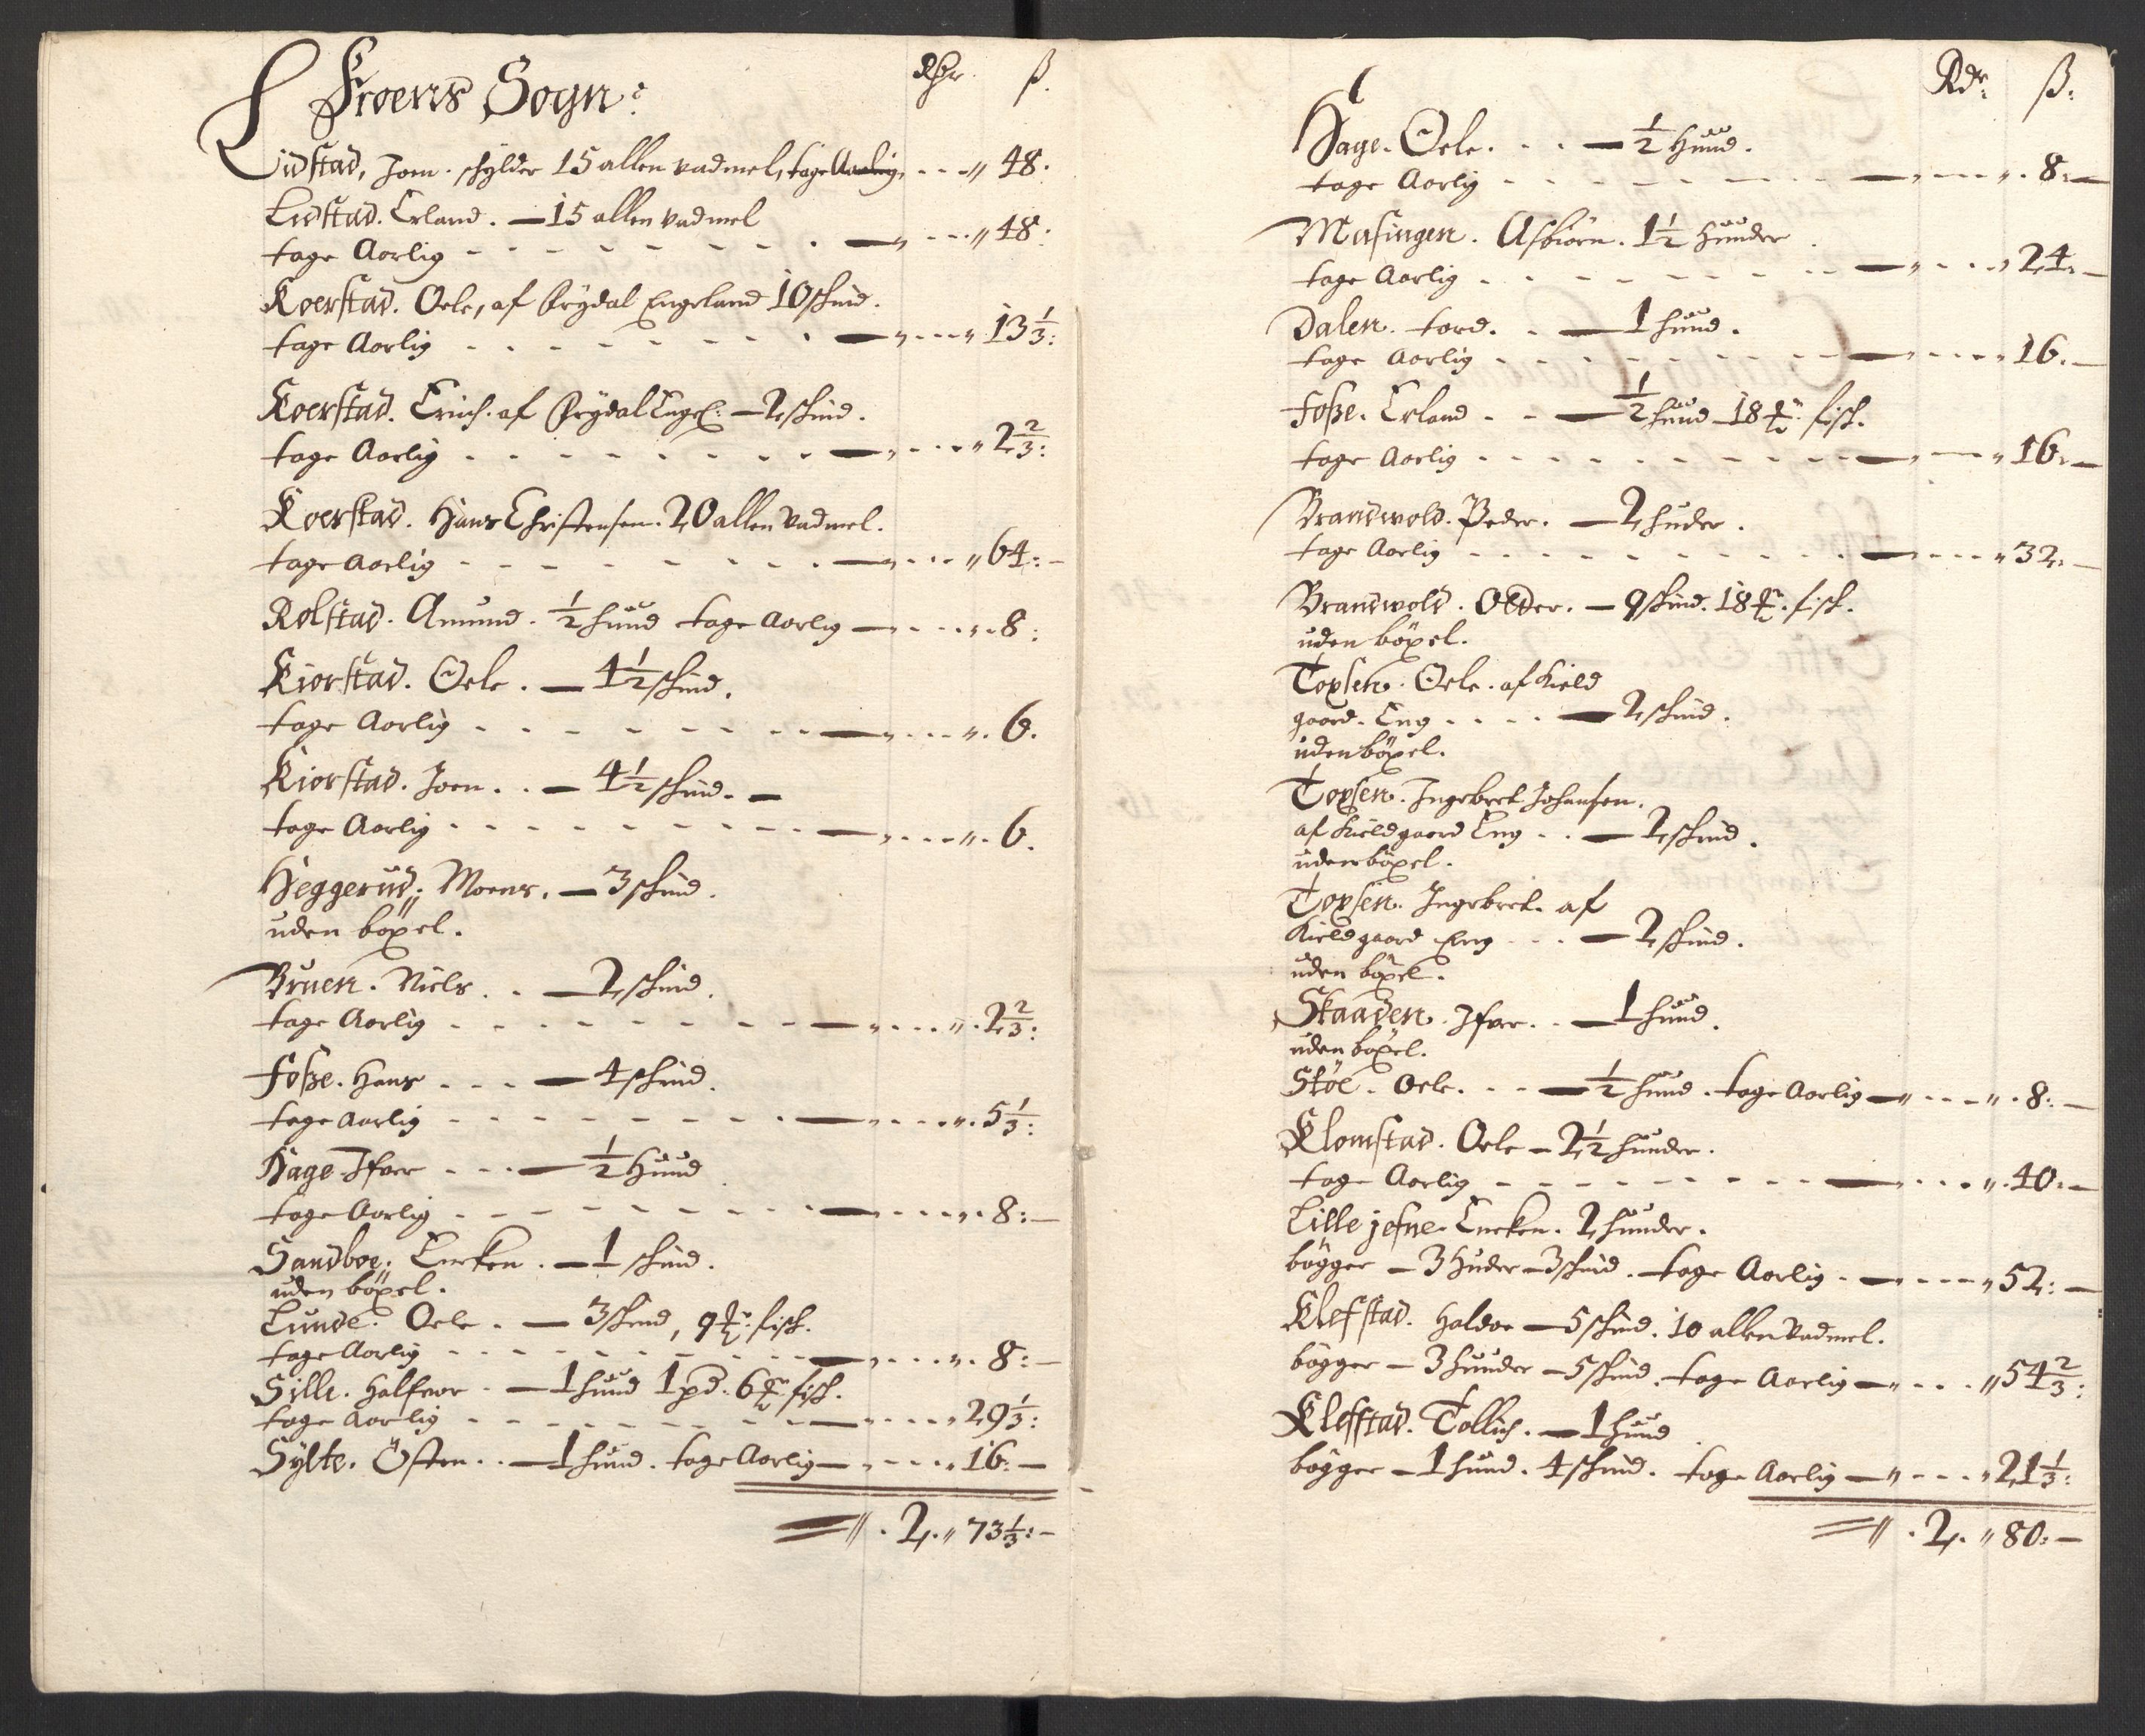 Froens Sogn:
Rdr. ß.
Lidstad, Joen. schylder 15 allen vadmel, tage Aarlig, - - - „ 48.
Lidstad. Erland. — 15 allen vadmel
tage Aarlig - - - - - - - — „ - - - „ 48:
Koerstad. Oele, af Frydal Engeland 10 skind.
tage Aarlig - - - - - - - — „ - - - „ 13 1/3:
Koerstad. Erich. af Frydal Engel: — 2 skind.
tage Aarlig - - - - - - - — „ - - - „ 2 2/3:
Koerstad. Hans Christensen. 20 allen vadmel.
tage Aarlig - - - - - - - — „ - - - „ 64: —
Rolstad. Amund. 1/2 huud tage Aarlig — „ - - - „ 8:
Kiorstad. Oele. — 4 1/2 skind.
tage Aarlig - - - - - - - — „ - - - „ 6.
Kiorstad. Joen. . — 4 1/2 skind. —
tage Aarlig - - - - - - - — „ - - - „ 6.
Heggerud. Moens. — 3 skind.
uden böxel.
Bruen. Niels. . — 2 skind.
tage Aarlig - - - - - - - — „ - - - „ 2 2/3:
Foße. Hans - - - — 4 skind.
tage Aarlig - - - - - - - — „ - - - „ 5 1/3:
Hage Ifver - - - — 1/2 Huud
tage Aarlig - - - - - - - — „ - - - „ 8: —
Sandboe. Encken. — 1 skind.
uden böxel.
Lunde. Oele. — 3 skind, 9 ℔r fisk.
tage Aarlig - - - - - - - — „ - - - „ 8: —
Sille. Halfvor - — 1 huud 1 pd. 6 ℔r fisk.
tage Aarlig - - - - - - - — „ - - - „ 29 1/3:
Sylte. Östen. . — 1 huud. tage Aarlig — „ - - - „ 16: —
„ . 2. „ 73 1/3: —
Rdr. ß:
Hage. Oele. - - — 1/2 Huud.
tage Aarlig - - - - - - - — „ - - - „ 8: —
Musingen. Asbiörn. 1 1/2 huuder
tage Aarlig - - - - - - - — „ - - - „ 24: —
Dalen. tord. . — 1 huud.
tage Aarlig - - - - - - - — „ - - - „ 16. —
Foße. Erland - - — 1/2 huud — 18 ℔r fisk.
tage Aarlig - - - - - - - — „ - - - „ 16: —
Brandwold. Peder. — 2 huder.
tage Aarlig - - - - - - - — „ - - - „ 32: —
Brandwold. Otter. — 9 skind. 18 ℔r. fisk.
uden böxel.
Toxsen. Oele. af Kield
gaord. Eng - - - - — 2 skind.
uden böxel.
Toxsen. Ingebret Johansen.
af Kieldgaard Eng - - — 2 skind.
uden böxel.
Toxsen. Ingebret. af
Kieldgaard Eng - - - — 2 skind.
uden böxel.
Skaaden. Ifver. . — 1 huud.
uden böxel.
Stöe. Oele. - - — 1/2 huud. tage Aarlig — „ - - - „ 8: —
Klomstad. Oele — 2 1/2 huuder.
tage Aarlig - - - - - - - — „ - - - „ 40: —
Lille jefne. Encken. 2 huuder.
bögger — 3 huder — 3 skind. tage Aarlig. — „ - - - „ 52: —
Klefstad. Haldor — 5 skind. 10 allen vadmel.
bögger — 3 huuder — 5 skind. tage Aarlig — „ - - - „ 54 2/3:
Klefstad. Tollich. — 1 huud
bögger — 1 huud. 4 skind. tage Aarlig — „ - - - „ 21 1/3:
„ . 2. „ 80: —